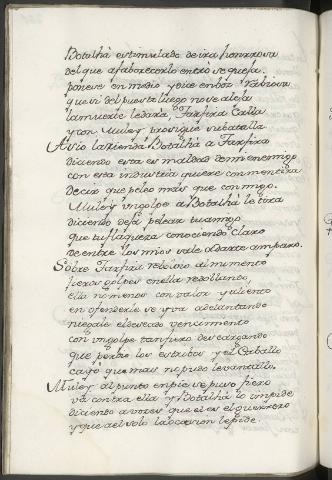 Botalhà estimulado de ira honrrosa
del que a faborecerlo entrò se quexa.
ponese en medio y dice en boz rabiosa
que si del puesto luego no se alexa
la muerte le darà, Tarfira calla
y con Muley prosigue su batalla
Asio la rienda Botalhà a Tarfira
diciendo esta es maldad de mi enemigo
con esta industria quiere con mentira
decir que peleò màs que conmigo.
Muley un golpe a Botalhà le tira
diciendo dexa pelear tu amigo
que tu flaqueza conociendo claro
de entre los mios sale a darte amparo.
Sobre Tarfira rebolvio al momento
fieros golpes en ella redoblando
ella no menos con valor y aliento
en ofenderle se yva adelantando
niegale el deseado vencimiento
con un golpe tan fiero descargando
que perdio los estribos y el Caballo
cayò que mas no pudo levantallo.
Muley al punto en pie se puso fiero
va contra ella y Botalhà lo impide
diciendo a voces que el es el guerrero
y que a el solo la ocasion le pide.